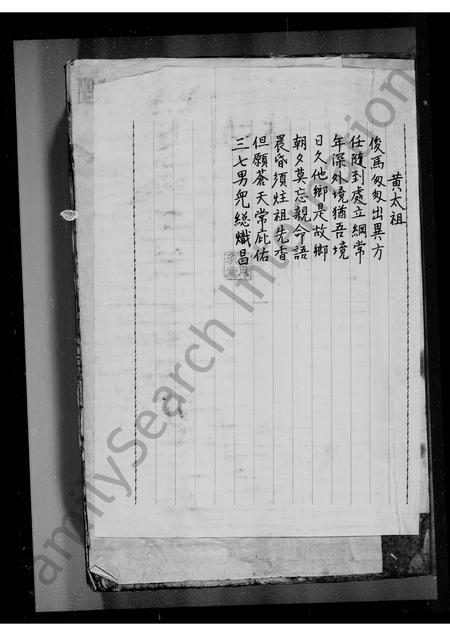 黄太祖
俊馬匆匆出異方
任隨到處立綱常
年深外境猶吾境
日久他鄉是故鄉
朝夕莫忘親命語
晨昏須炷祖先香
但願蒼天常庇佑
三七男兒総熾昌
amilySearch International